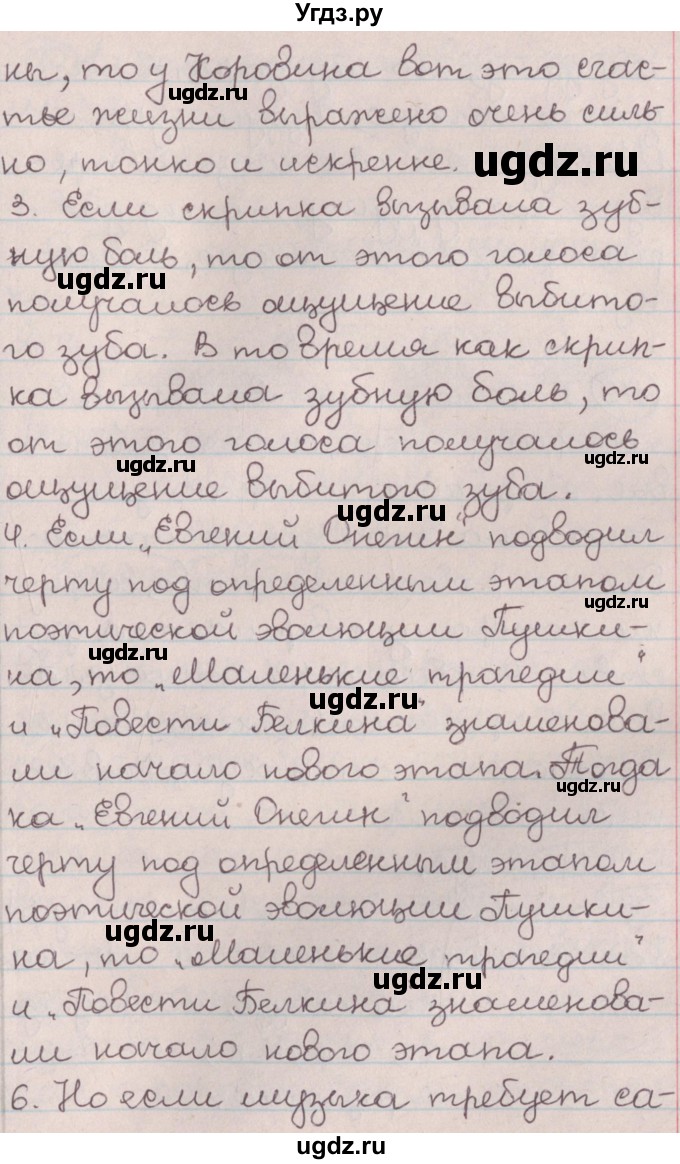 Угдз.ру
ны, то у Коровина вот это счас-
тье жизни выражено очень силь
но, тонко и искренне.
3. Если скрипка вызывала зуб-
ную боль, то от этого голоса
получалось ощущение выбито-
го зуба. В то время как скрип-
ка вызывала зубную боль, то
от этого голоса получалось
ощущение выбитого зуба.
4. Если „Евгений Онегин“ подводил
черту под определенным этапом
поэтической эволюции Пушки-
на, то „Маленькие трагедии“
и „Повести Белкина“ знаменова-
ли начало нового этапа. Тогда
ка „Евгений Онегин“ подводил
черту под определенным этапом
поэтической эволюции Пушки-
на, то „Маленькие трагедии“
и „Повести Белкина знаменова-
ли начало нового этапа.
6. Но если музыка требует са-
ugdz.ru
ugdz.ru
ugdz.ru
ugdz.ru
ugdz.ru
ugdz.ru
ugdz.ru
ugdz.ru
ugdz.ru
ugdz.ru
ugdz.ru
ugdz.ru
ugdz.ru
ugdz.ru